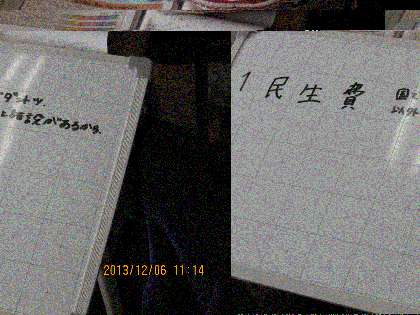 ダントツ
があるから
1 民生費
国
以外
2013/12/06 11:14